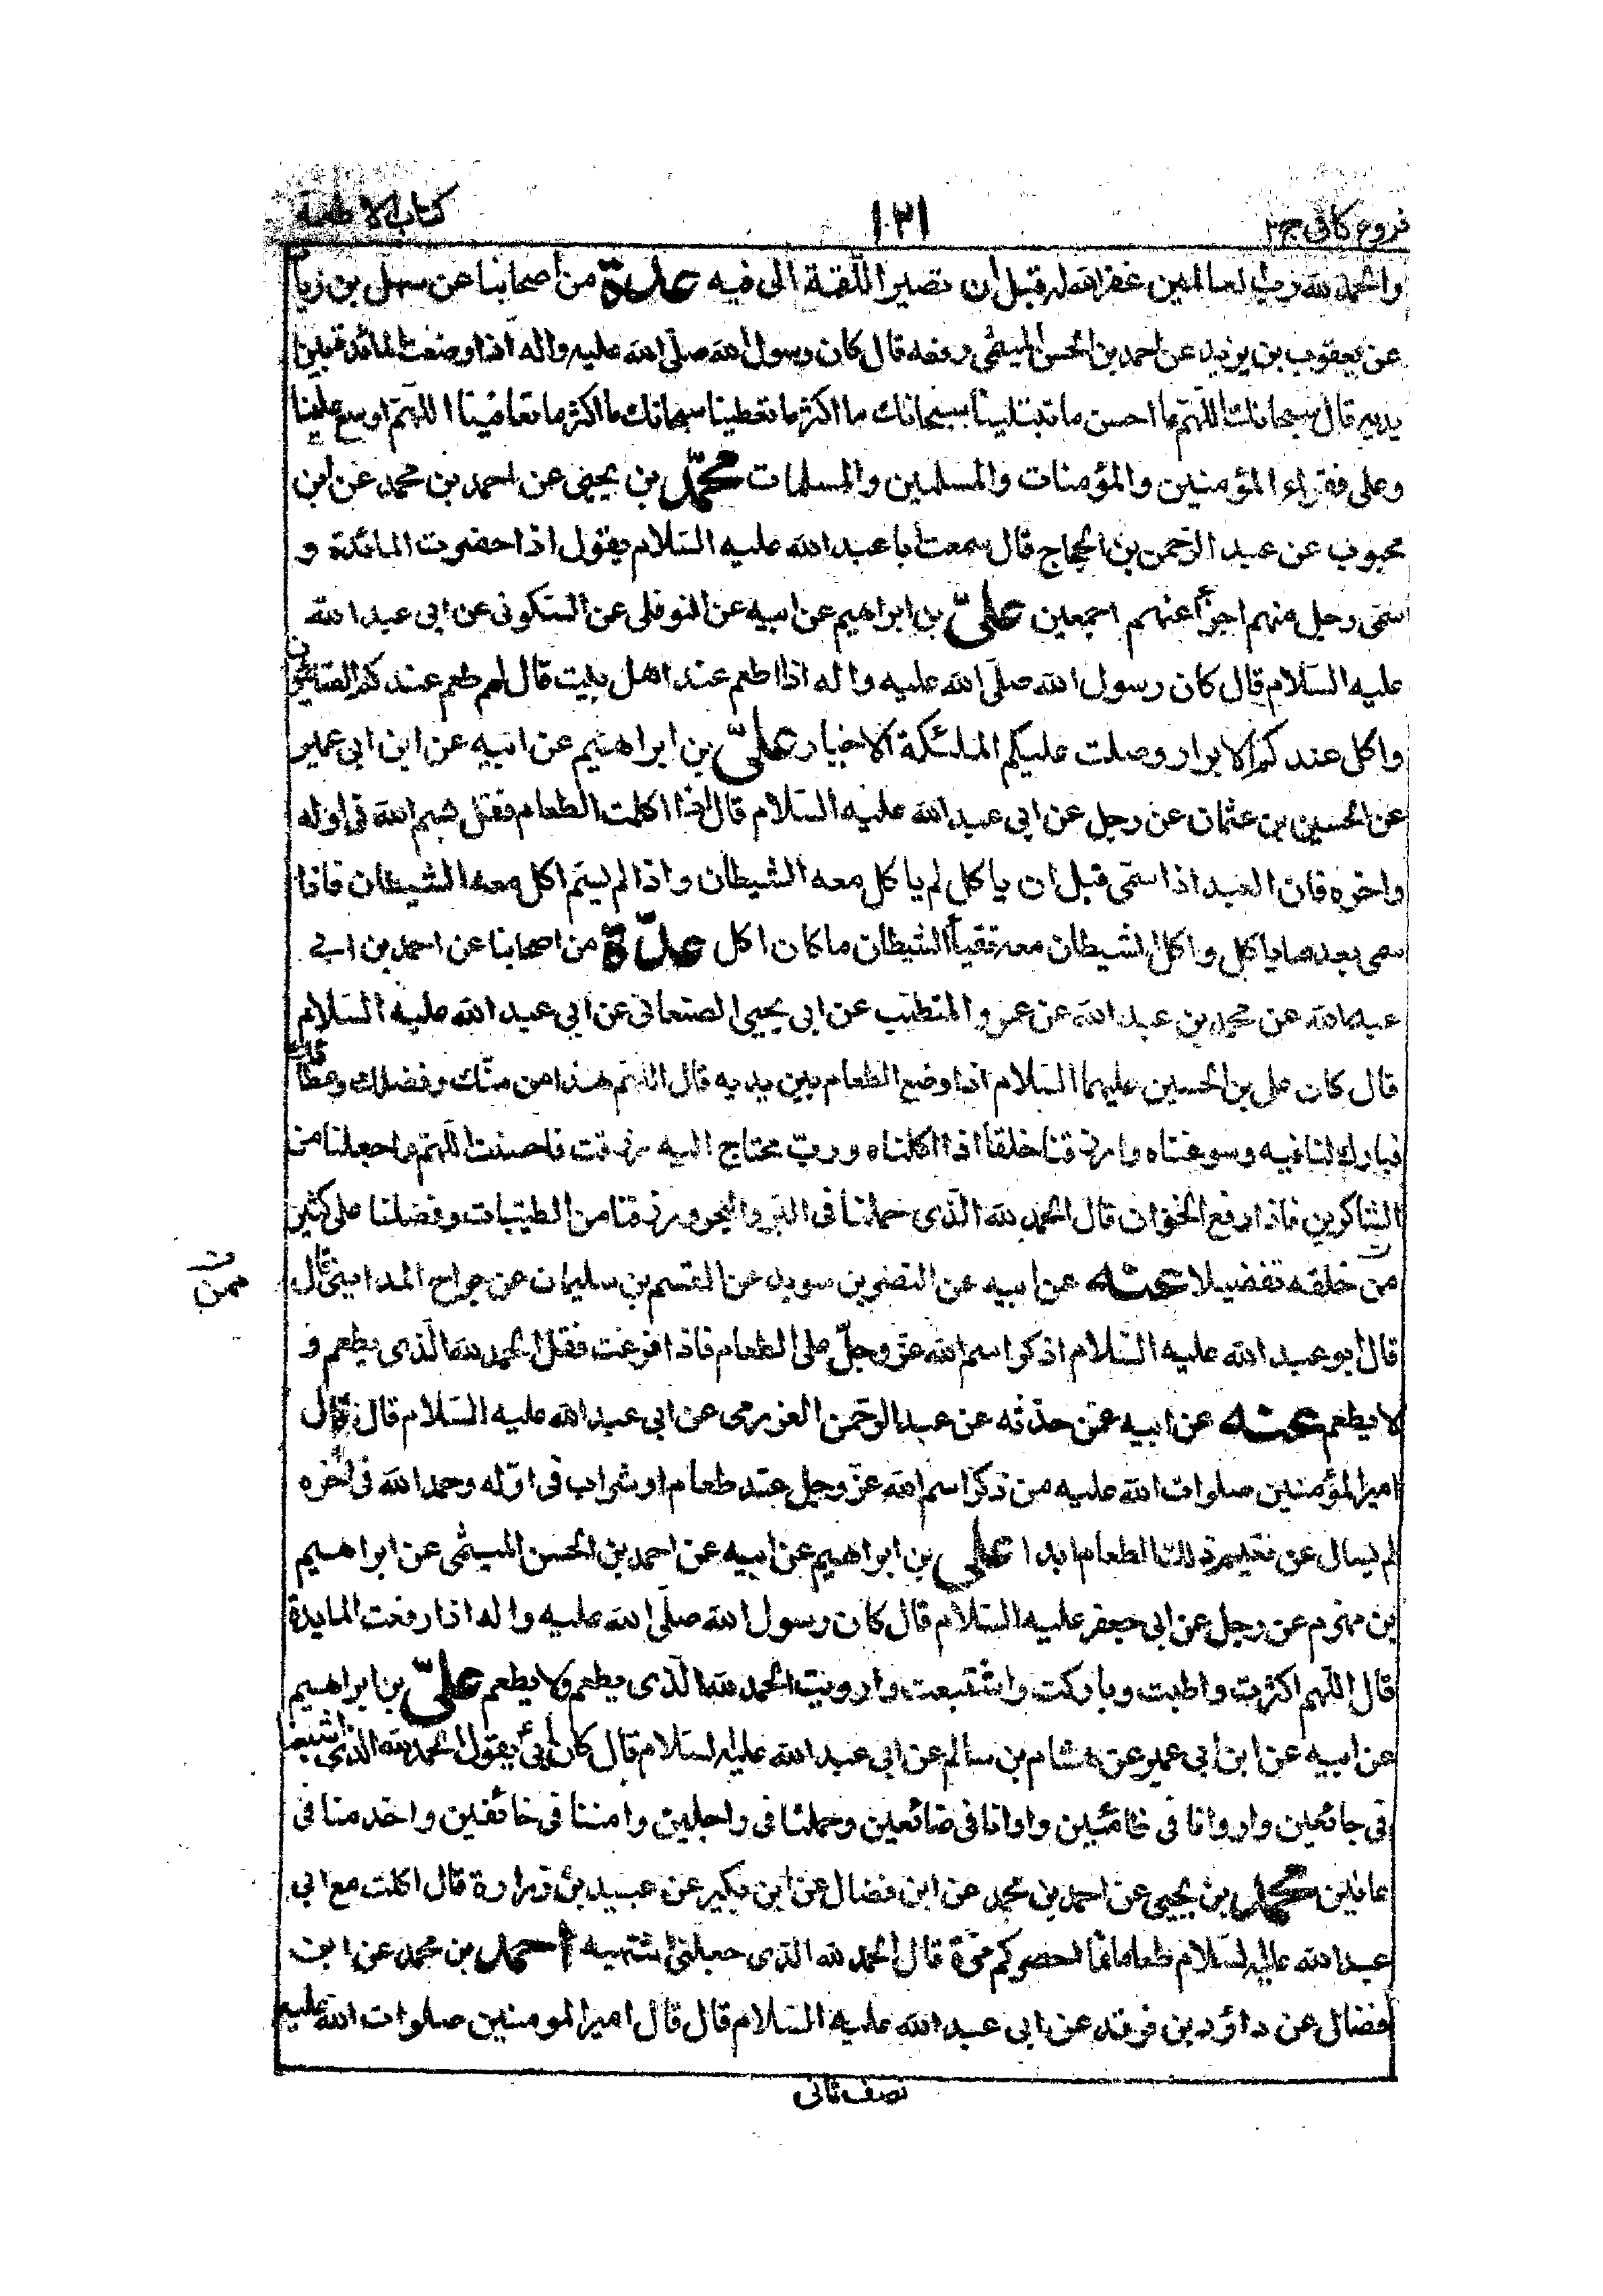 فروع كافى ج٢
١٢١
كتاب الاطعمة
والحمد لله رب العالمين غفر الله له قبل أن تصير اللقمة الى فيه عدة من أصحابنا عن سهل بن زياد
عن يعقوب بن يزيد عن احمد بن الحسن الميثمى رفعه قال كان رسول الله صلّى الله عليه واله اذا وضعت المائدة بين
يديه قال سبحانك اللّهم ما احسن ما تبتلينا سبحانك ما اكثر ما تعطينا سبحانك ما اكثر ما تعافينا اللهم اوسع علينا
وعلى فقراء المؤمنين والمؤمنات والمسلمين والمسلمات محمّد بن يحيى عن احمد بن محمد عن ابن
محبوب عن عبد الرحمن بن الحجاج قال سمعت أبا عبد الله عليه السّلام يقول اذا حضرت المائدة و
سمّى رجل منهم اجزأ عنهم اجمعين علىّ بن ابراهيم عن ابيه عن النوفلى عن السكونى عن ابى عبد الله
عليه السّلام قال كان رسول الله صلّى الله عليه واله اذا طعم عند اهل بيت قال لهم طعم عندكم الصائمون
واكل عندكم الابرار وصلت عليكم الملئكة الاخيار علىّ بن ابراهيم عن ابيه عن ابن ابى عمير
عن الحسين بن عثمان عن رجل عن ابى عبد الله عليه السّلام قال اذا اكلت الطعام فقل بسم الله فى اوله
واخره فان العبد اذا سمّى قبل ان ياكل لم ياكل معه الشيطان واذا لم يسم اكل معه الشيطان فاذا
سمى بعد ما ياكل واكل الشيطان معه تقيأ الشيطان ما كان اكل عدّة من اصحابنا عن احمد بن ابى
عبد الله عن محمد بن عبد الله عن عمرو المتطبب عن ابى يحيى الصنعانى عن ابى عبد الله عليه السّلام
قال كان على بن الحسين عليهما السّلام اذا وضع الطعام بين يديه قال اللهم هذا من منّك وفضلك وعطائك
فبارك لنا فيه وسوغناه وارزقنا خلفا اذا اكلناه وربّ محتاج اليه رزقت فاحسنت اللّهم واجعلنا من
الشاكرين فاذا رفع الخوان قال الحمد لله الّذى حملنا فى البر والبحر ورزقنا من الطيّبات وفضلنا على كثير
من خلقه تفضيلا عنه عن ابيه عن النضر بن سويد عن القسم بن سليمان عن جراح المداينى قال
ممن
قال ابو عبد الله عليه السّلام اذكر اسم الله عزّ وجلّ على الطعام فاذا فرغت فقل الحمد لله الّذى يطعم و
لا يطعم عنه عن ابيه عمّن حدّثه عن عبد الرحمن العزرمى عن ابى عبد الله عليه السّلام قال قال
امير المؤمنين صلوات الله عليه من ذكر اسم الله عزّ وجل عند طعام او شراب فى اوّله وحمد الله فى اخره
لم يسال عن نعيم ذلك الطعام ابدا على بن ابراهيم عن ابيه عن احمد بن الحسن الميثمى عن ابراهيم
بن مهزم عن رجل عن ابى جعفر عليه السّلام قال كان رسول الله صلّى الله عليه واله اذا رفعت المايدة
قال اللّهم اكثرت واطبت وباركت واشبعت وارويت الحمد لله الّذى يطعم ولا يطعم علىّ بن ابراهيم
عن ابيه عن ابن ابى عمير عن هشام بن سالم عن ابى عبد الله عليه السّلام قال كان أبى يقول الحمد لله الذى اشبعنا
فى جائعين واروانا فى ظامئين واوانا فى ضائعين وحملنا فى راجلين وامننا فى خائفين واخدمنا فى
عانين محمد بن يحيى عن احمد بن محمد عن ابن فضال عن ابن بكير عن عبيد بن زرارة قال اكلت مع ابى
عبد الله عليه السّلام طعاما فما احصى كم مرّة قال الحمد لله الذى جعلنى اشتهيه احمد بن محمد عن ابن
فضال عن داؤد بن فرقد عن ابى عبد الله عليه السّلام قال قال امير المومنين صلوات الله عليه
نصف ثانى